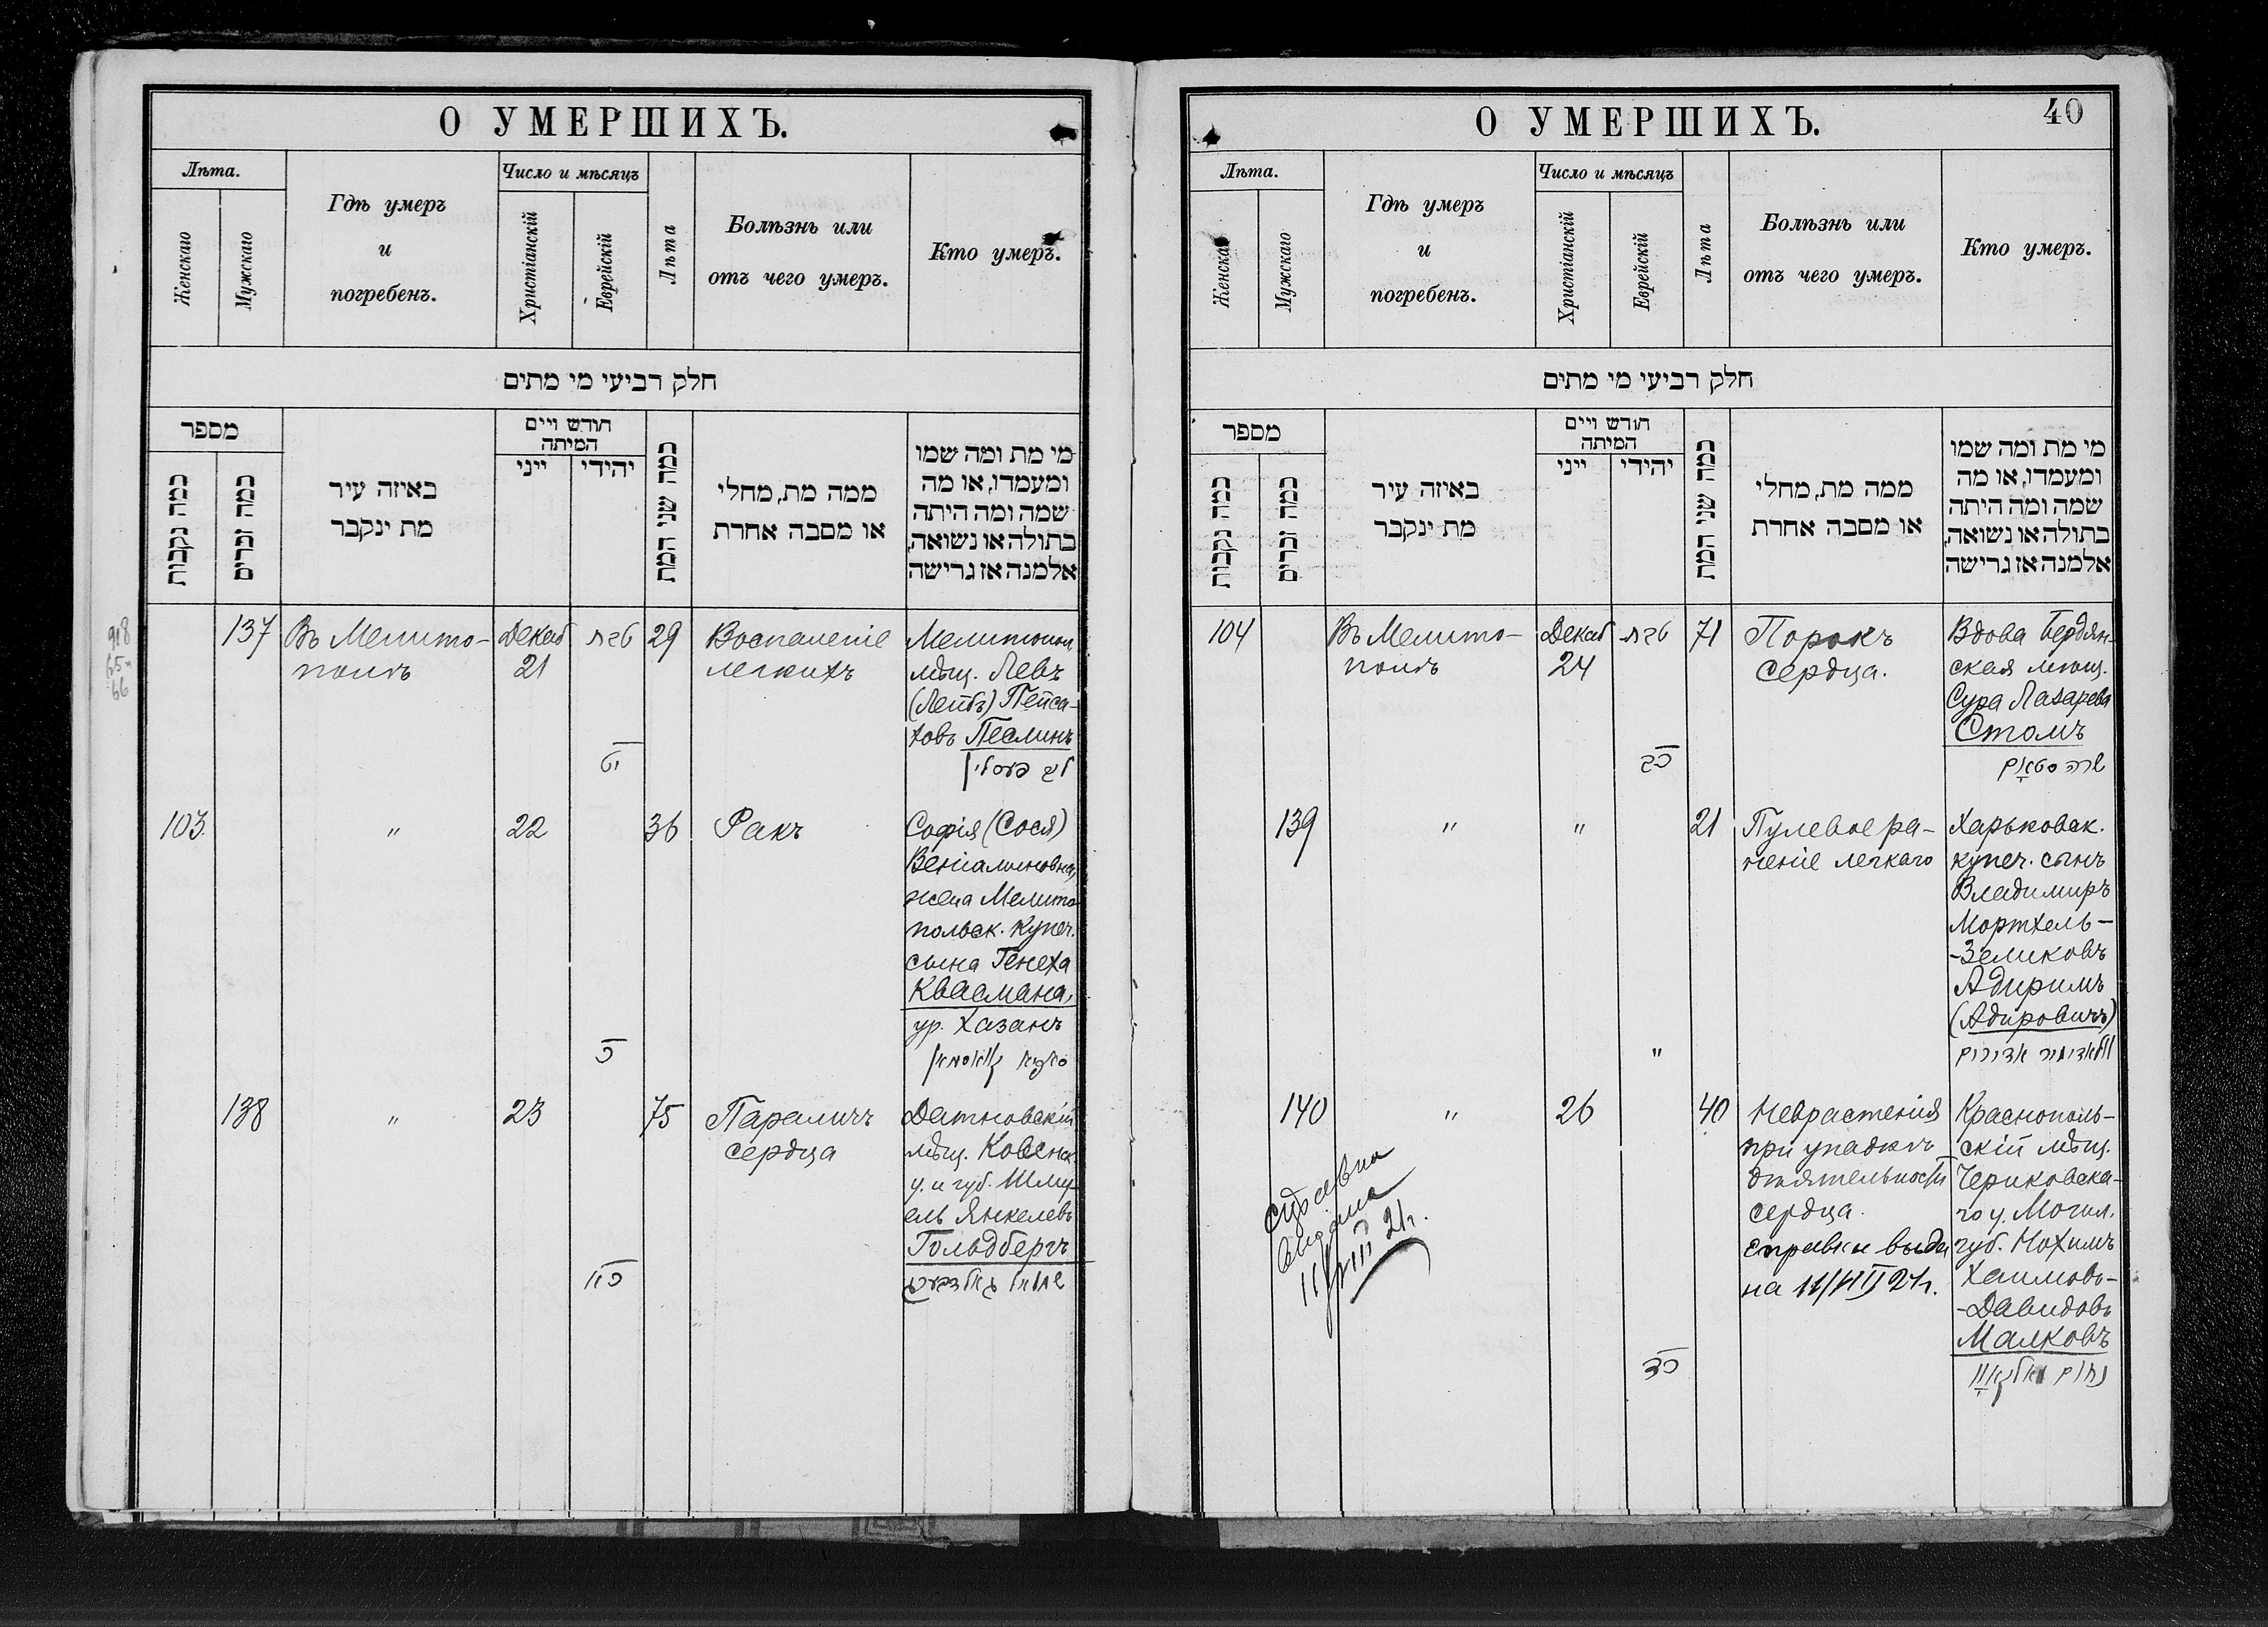 О УМЕРШИХЪ.
Лѣта.
Женскаго
Мужскаго
Гдѣ умеръ
и
погребенъ.
Число и мѣсяцъ
Христіанскій
Еврейскій
Лѣта
Болѣзнь или
отъ чего умеръ.
Кто умеръ.
חלק רביעי מי מתים
מספר
כמה נקבות
כמה זכרים
באיזה עיר
מת ינקבר
חודש ויים
המיתה
ייני
יהודי
כמה שני המת
ממה מת, מחלי
או מסבה אחרת
מי מת ומה שמו
ומעמדו, או מה
שמה ומה היתה
בתולה או נשואה,
אלמנה אז גרישה
137
Въ Мелито-
полѣ
Декаб
21
טבת
יט
29
Воспаленіе
легкихъ
Мелитопол.
мѣщ. Левъ
(Лейбъ) Пейса-
ховъ Песлинъ
לב פעסלין
103
"
22
כ
36
Ракъ
Софія (Сося)
Веніаминовна,
жена Мелито-
польск. купеч.
сына Генеха
Квасмана,
ур. Хазанъ
קוואסמאן
138
"
23
כא
75
Параличъ
сердца
Датновскій
мѣщ. Ковенск.
у. и губ. Шму-
ель Янкелевъ
Гольдбергъ
שמואל גאלדבערג
918
65
56
О УМЕРШИХЪ.
40
Лѣта.
Женскаго
Мужскаго
Гдѣ умеръ
и
погребенъ.
Число и мѣсяцъ
Христіанскій
Еврейскій
Лѣта
Болѣзнь или
отъ чего умеръ.
Кто умеръ.
חלק רביעי מי מתים
מספר
כמה נקבות
כמה זכרים
באיזה עיר
מת ינקבר
חודש ויים
המיתה
ייני
יהודי
כמה שני המת
ממה מת, מחלי
או מסבה אחרת
מי מת ומה שמו
ומעמדו, או מה
שמה ומה היתה
בתולה או נשואה,
אלמנה אז גרישה
104
Въ Мелито-
полѣ
Декаб
24
טבת
כב
71
Порокъ
сердца.
Вдова Бердян-
ская мѣщ.
Сура Лазарева
Стамъ
שרה סטאם
139
"
"
"
21
Пулевое ра-
неніе легкаго
Харьковск.
купеч. сынъ
Владимиръ
Мортхель-
-Зеликовъ
Адиримъ
(Адировичъ)
וולאדימיר אדירים
140
"
26
כד
40
Неврастенія
при упадкѣ
дѣятельности
сердца.
справки выда
на 11/VIII 21г.
Краснополь-
скій мѣщ.
Чериковска-
го у. Могил.
губ. Нохимъ
Хаимовъ-
-Давидовъ
Малковъ
נחום מאלקאוו
справка
выдана
11/VIII 21г.